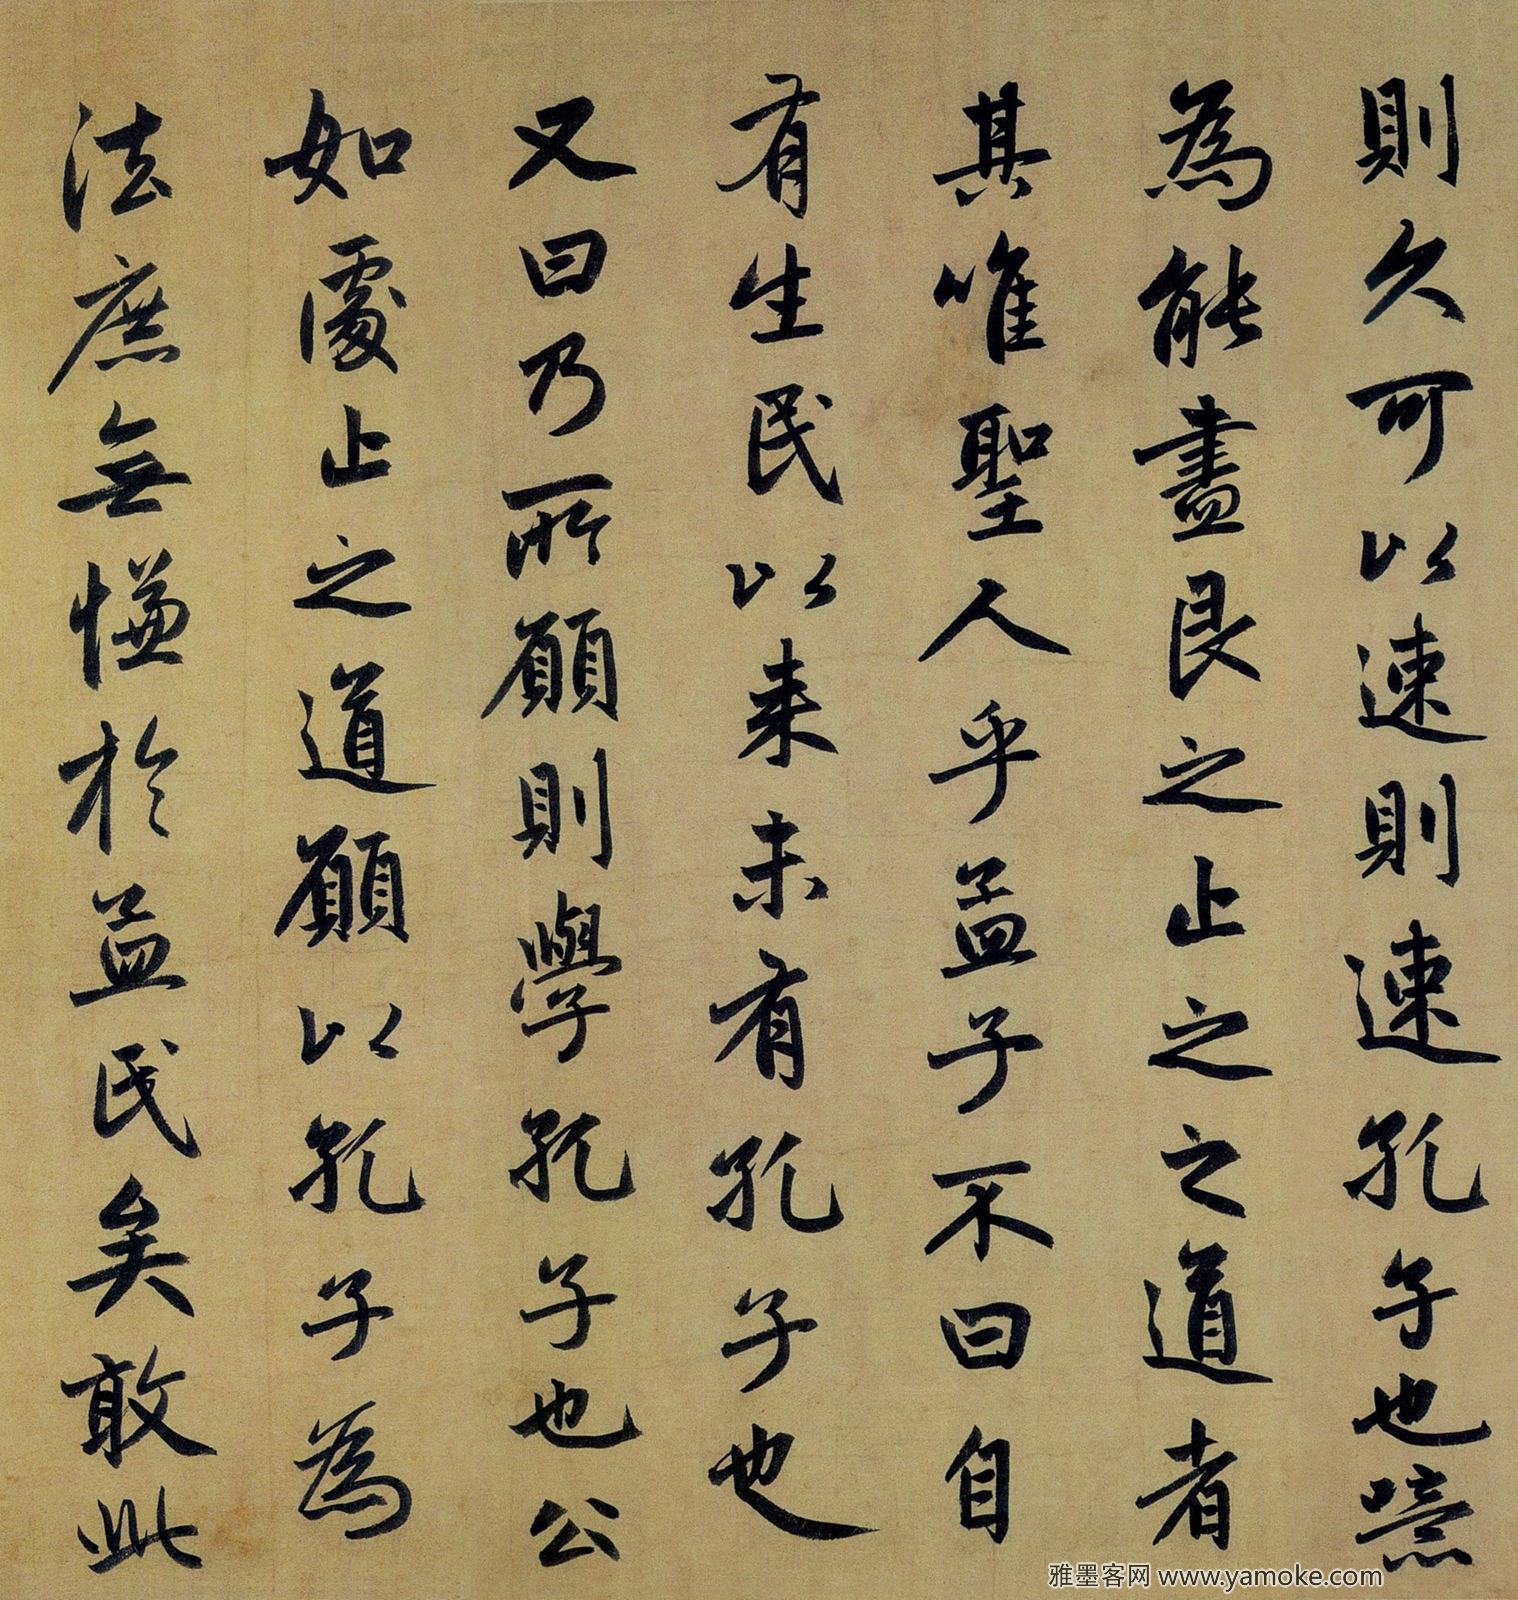 則久可以速則速孔子也噫
為能盡艮之止之之道者
其唯聖人乎孟子不曰自
有生民以来未有孔子也
又曰乃所願則學孔子也公
如處止之道願以孔子為
法庶無慊於孟氏矣敢此
雅墨客网 www.yamoke.com